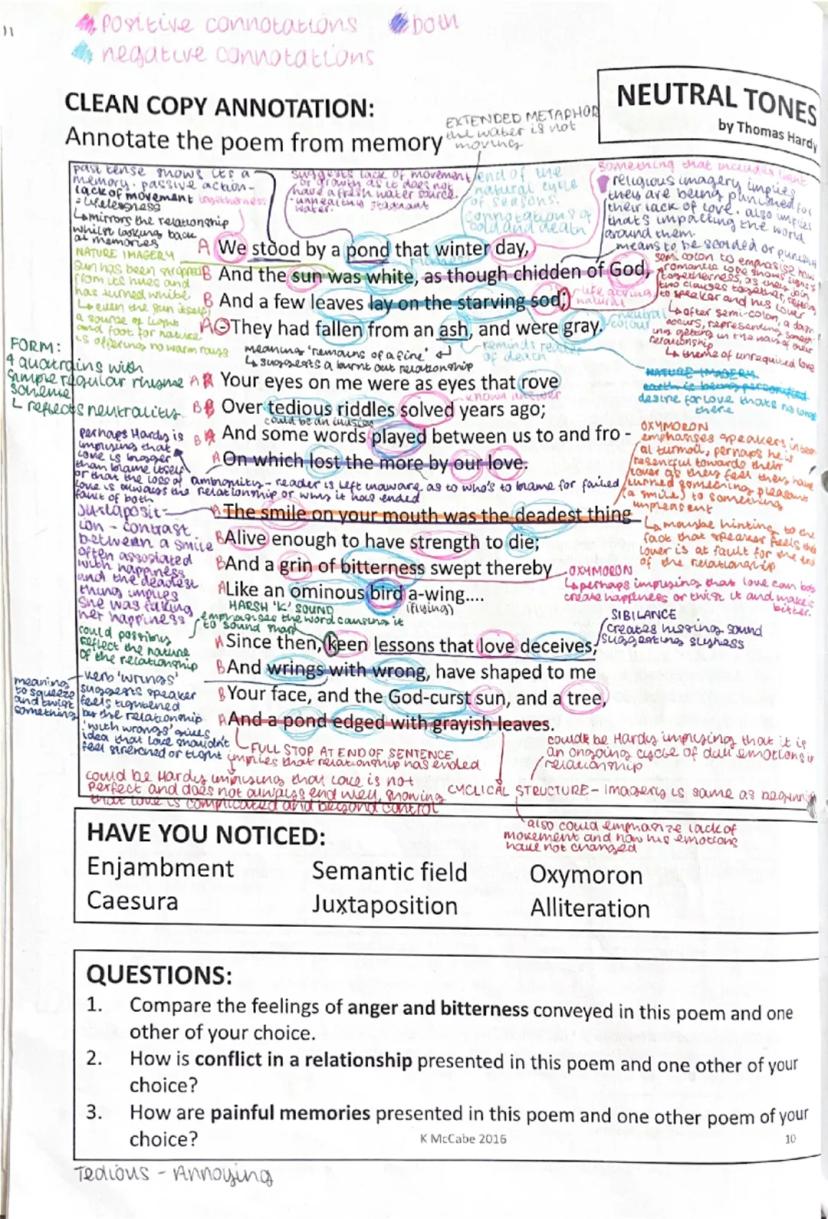 11
positive connotations
both
negative connotations
CLEAN COPY ANNOTATION:
Annotate the poem from memory
NEUTRAL TONES
by Thomas Hardy
EXTENDED METAPHOR
the water is not
moving
past tense shows its a
memory. passive action-
lack of movement togetherness
= lifelessness
↳ mirrors the relationship
whilst looking back
at memories
suggests lack of movement
or growth as it does not
have a fresh water source.
unhealthy stagnant
water.
end of the
natural cycle
of seasons.
connotations of
cold and death
religious imagery implies
they are being punished for
their lack of love. also implies
that's impacting the world
around them
means to be scolded or
NATURE IMAGERY
sun has been stripped
from its hues and
has turned white
↳ even the sun itself
a source of light
and foot for nature
is offering no warm rays
A We stood by a pond that winter day,
B And the sun was white, as though chidden of God,
B And a few leaves lay on the starving sod;
A They had fallen from an ash, and were gray.
life giving
natural
neutral
colour
reminds reader
of death
meaning 'remains of a fire'
↳ suggests a burnt out relationship
semi colon to emphasise
togetherness, as they join
two clauses together,
to speaker and his lover
↳ after semi-colon, a dash
relationship
↳ theme of unrequited love
NATURE IMAGERY
earth is being personified
desire for love thats no longer
there
FORM:
4 quatrains with
simple regular rhyme
scheme
↳ reflects neutrality
A Your eyes on me were as eyes that rove
B Over tedious riddles solved years ago;
known answer
could be an
B And some words played between us to and fro -
A On which lost the more by our love.
perhaps Hardy is
implying that
love is bigger
than blame itself
or that the loss of
love is always the
fault of both
ambiguity - reader is left unaware as to who's to blame for failed
relationship or why it has ended
OXYMORON
emphasises speakers
turmoil, perhaps he is
resentful towards their
lover as they feel they have
turned something pleasant
(a smile) to something
unpleasant
↳ maybe hinting to the
fact that speaker feels the
lover is at fault for the end
of the relationship
juxtaposit-
ion - contrast
between a smile
often associated
with happiness
and the deadest
thing implies
she was faking
her happiness
A The smile on your mouth was the deadest thing
B Alive enough to have strength to die;
B And a grin of bitterness swept thereby
A Like an ominous bird a-wing....
(flying)
OXYMORON
↳ perhaps implying that love can both
create happiness or twist it and make it
bitter.
HARSH 'K' SOUND
emphasises the word causing it
to sound
SIBILANCE
creates hissing sound
suggesting slyness
could possibly
reflect the nature
of the relationship
A Since then, keen lessons that love deceives,
B And wrings with wrong, have shaped to me
B Your face, and the God-curst sun, and a tree,
A And a pond edged with grayish leaves.
meaning
to squeeze
and twist
something
verb 'wrings'
suggests speaker
feels tightened
by the relationship
'with wrongs' gives
idea that love shouldn't
feel stretched or tight
↳ FULL STOP AT END OF SENTENCE
implies that relationship has ended
could be Hardy implying that love is not
perfect and does not always end well, showing
that love is complicated and beyond control
could be Hardy implying that it is
an ongoing cycle of dull emotions in
relationship
CYCLICAL STRUCTURE - imagery is same as
also could emphasize lack of
movement and how his emotions
have not changed
HAVE YOU NOTICED:
Enjambment Semantic field Oxymoron
Caesura Juxtaposition Alliteration
QUESTIONS:
1. Compare the feelings of anger and bitterness conveyed in this poem and one
other of your choice.
2. How is conflict in a relationship presented in this poem and one other of your
choice?
3. How are painful memories presented in this poem and one other poem of your
choice?
K McCabe 2016
10
Tedious - Annoying